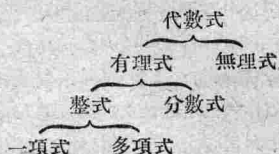 代數式
有理式 無理式
整式 分數式
一項式 多項式